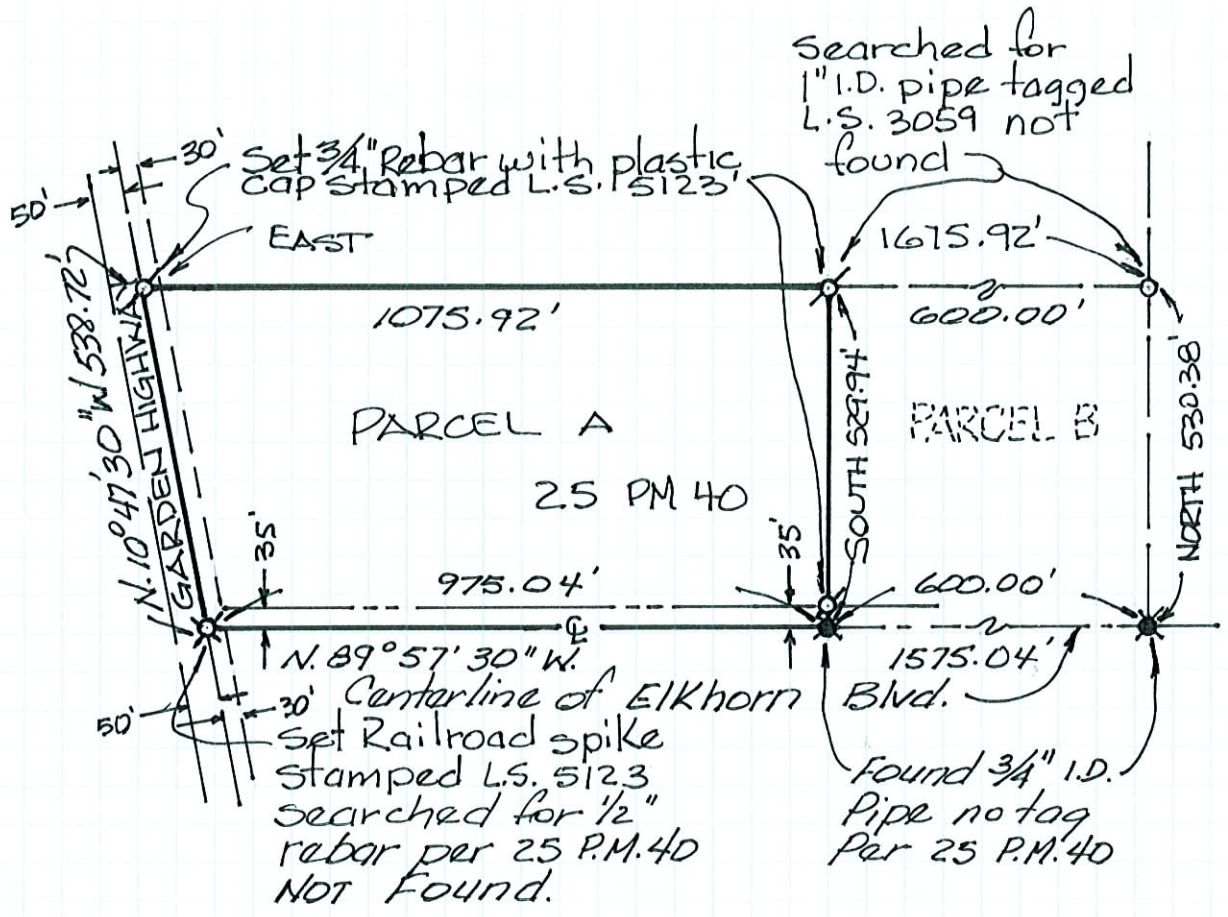 Searched for
1" I.D. pipe tagged
L.S. 3059 not
found
30'
Set 3/4" Rebar with plastic
cap stamped L.S. 5123'
50'
EAST
1675.92'
1075.92'
600.00'
N. 10°47'30" W 538.72'
GARDEN HIGHWAY
PARCEL A
25 PM 40
SOUTH 529.94'
PARCEL B
NORTH 530.38'
35'
975.04'
35'
600.00'
℄
N. 89°57'30" W.
1575.04'
Centerline of Elkhorn Blvd.
50'
30'
Set Railroad spike
Stamped L.S. 5123
Searched for 1/2"
rebar per 25 P.M. 40
NOT Found.
Found 3/4" I.D.
Pipe no tag
Per 25 P.M. 40